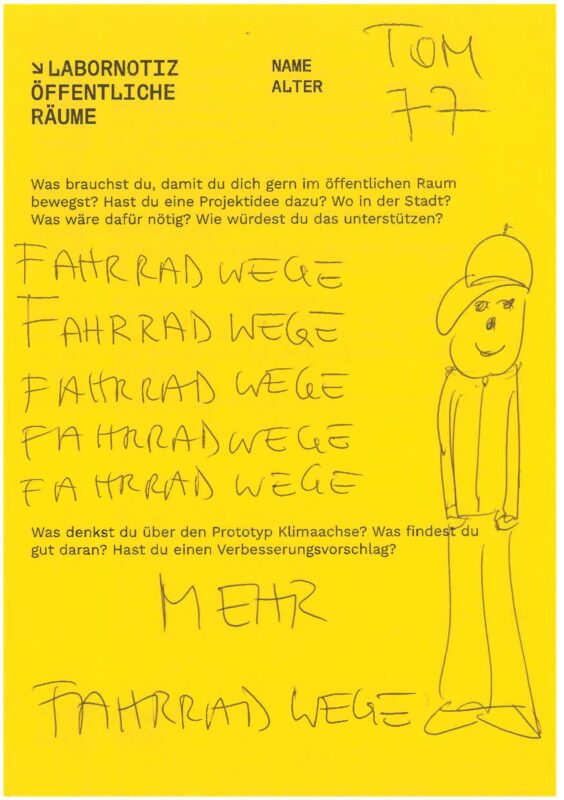 ↘ LABORNOTIZ
ÖFFENTLICHE
RÄUME
NAME
ALTER
TOM
77
Was brauchst du, damit du dich gern im öffentlichen Raum
bewegst? Hast du eine Projektidee dazu? Wo in der Stadt?
Was wäre dafür nötig? Wie würdest du das unterstützen?
FAHRRAD WEGE
FAHRRAD WEGE
FAHRRAD WEGE
FAHRRAD WEGE
FAHRRAD WEGE
Was denkst du über den Prototyp Klimaachse? Was findest du
gut daran? Hast du einen Verbesserungsvorschlag?
MEHR
FAHRRAD WEGE